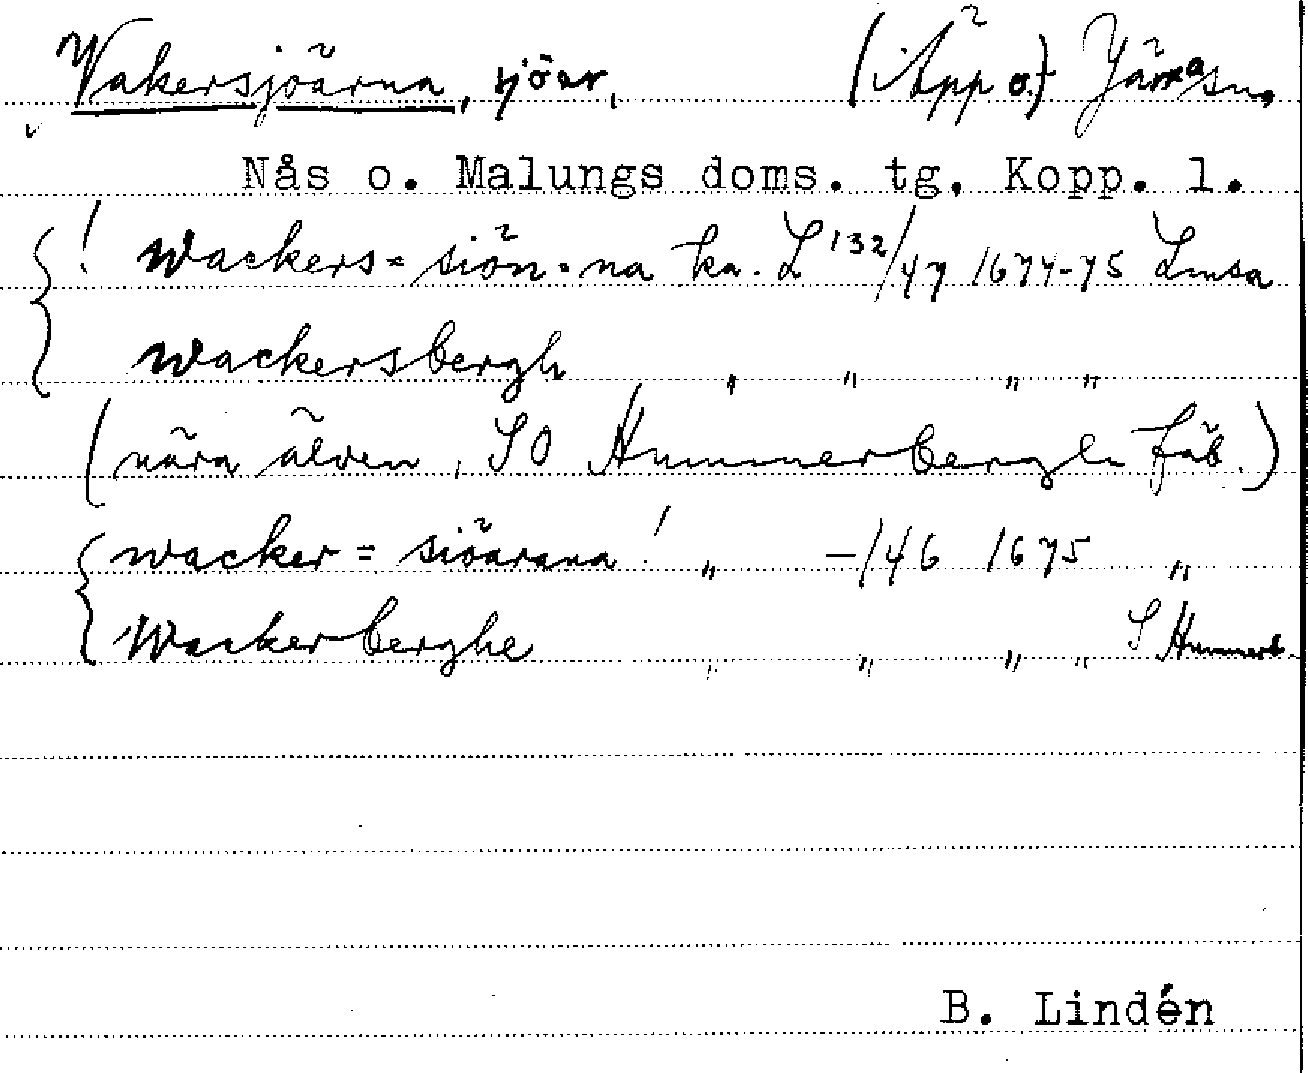 Wakersjöarna, sjöar, (i App o.) Järna sn,
Nås o. Malungs doms. tg. Kopp. l.
! Wackers= siön=na ka. L 132/47 1674-75 Lmsa
Wackersbergh " " " "
(nära älven, SO Hummerbergh fäb.)
wacker = siöarana ! " -/46 1675 "
Wackerberghe " " " " S Hummerb.
B. Lindén